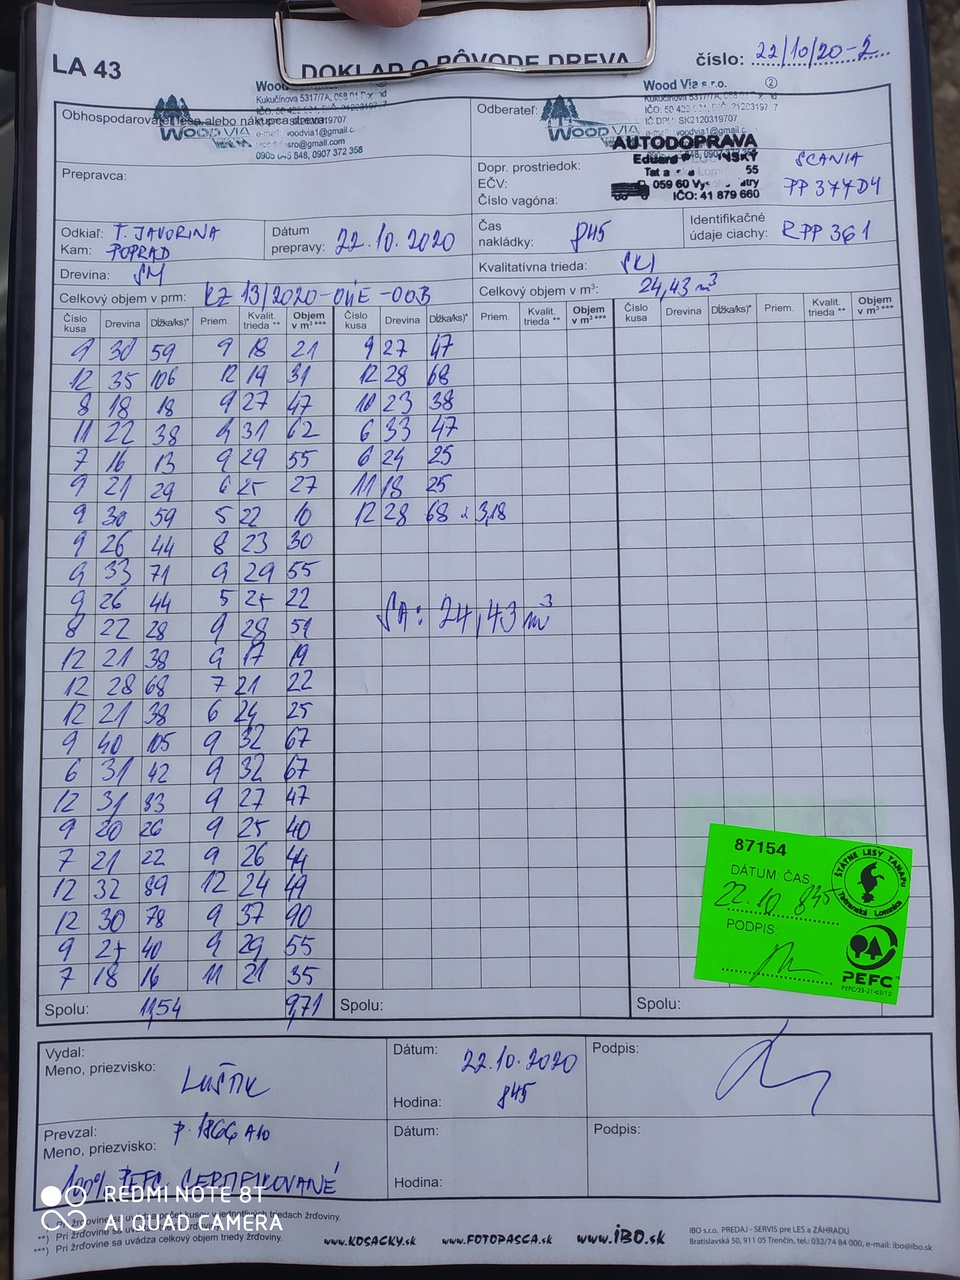 LA 43
DOKLAD O PÔVODE DREVA
číslo: 22/10/20-2
Obhospodarovateľ lesa alebo nákupca dreva:
WOOD VIA
Kukučínova 5317/7A, 058 01
0907 372 358
Odberateľ:
Wood Via s.r.o.
②
WOOD VIA
IČ DPH: SK2120319707
woodvia1@gmail.c
AUTODOPRAVA
Eduard
55
059 60
IČO: 41 879 660
Prepravca:
Dopr. prostriedok: SCANIA
EČV: PP 377DY
Číslo vagóna:
Odkiaľ: T. JAVORINA
Kam: POPRAD
Dátum prepravy: 22.10.2020
Čas nakládky: 845
Identifikačné údaje ciachy: RPP 361
Drevina: SM
Kvalitatívna trieda:
Celkový objem v prm: KZ 13/2020-OÚE-OOB
Celkový objem v m³: 24,43 m³
Číslo kusa Drevina Dĺžka/ks)* Priem. Kvalit. trieda ** Objem v m³ *** Číslo kusa Drevina Dĺžka/ks)* Priem. Kvalit. trieda ** Objem v m³ *** Číslo kusa Drevina Dĺžka/ks)* Priem. Kvalit. trieda ** Objem v m³ ***
9 30 59 9 18 21 9 27 47
12 35 106 12 19 31 12 28 68
8 18 18 9 27 47 10 23 38
11 22 38 9 31 62 6 33 47
7 16 13 9 29 55 6 24 25
9 21 29 6 25 27 11 18 25
9 30 59 5 22 10 12 28 68 3,18
9 26 44 8 23 30
9 33 71 9 29 55
9 26 44 5 25 22
8 22 28 9 28 51
SM: 24,43 m³
12 21 38 9 17 19
12 28 68 7 21 22
12 21 38 6 24 25
9 40 105 9 32 67
6 31 42 9 32 67
12 31 83 9 27 47
9 20 26 9 25 40
7 21 22 9 26 44
12 32 89 12 24 49
12 30 78 9 37 90
9 25 40 9 29 55
7 18 16 11 21 35
Spolu: 11,54 9,71 Spolu: Spolu:
87154
DÁTUM, ČAS
22.10 845
PODPIS:
ŠTÁTNE LESY TANAPu
Tatranská Lomnica
PEFC
PEFC/23-21-03/10
Vydal:
Meno, priezvisko: LUŠTIK
Dátum: 22.10.2020
Hodina: 845
Podpis:
Prevzal:
Meno, priezvisko: P. 1866 A10
Dátum:
Hodina:
Podpis:
100% PEFC CERTIFIKOVANÉ
REDMI NOTE 8T
AI QUAD CAMERA
**) Pri žrďovine sa
***) Pri žrďovine sa uvádza celkový objem triedy žrďoviny.
www.KOSACKY.sk www.FOTOPASCA.sk www.iBO.sk
IBO s.r.o. PREDAJ - SERVIS pre LES a ZÁHRADU
Bratislavská 50, 911 05 Trenčín, tel.: 032/74 84 000, e-mail: ibo@ibo.sk